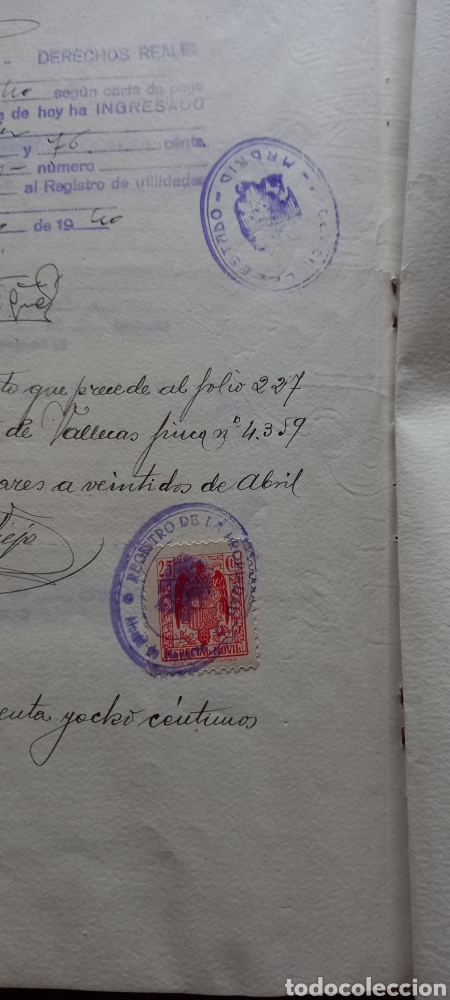 DERECHOS REALES
según carta de pago
de hoy ha INGRESADO
y 76 cénts.
número
al Registro de utilidades
de 19
MADRID
ESTADO
to que precede al folio 227
de Vallecas finca nº 4.359
ares a veintidos de Abril
REGISTRO DE LA PROPIEDAD
25 C
ESPECIAL MOVIL
enta y ocho céntimos
todocoleccion